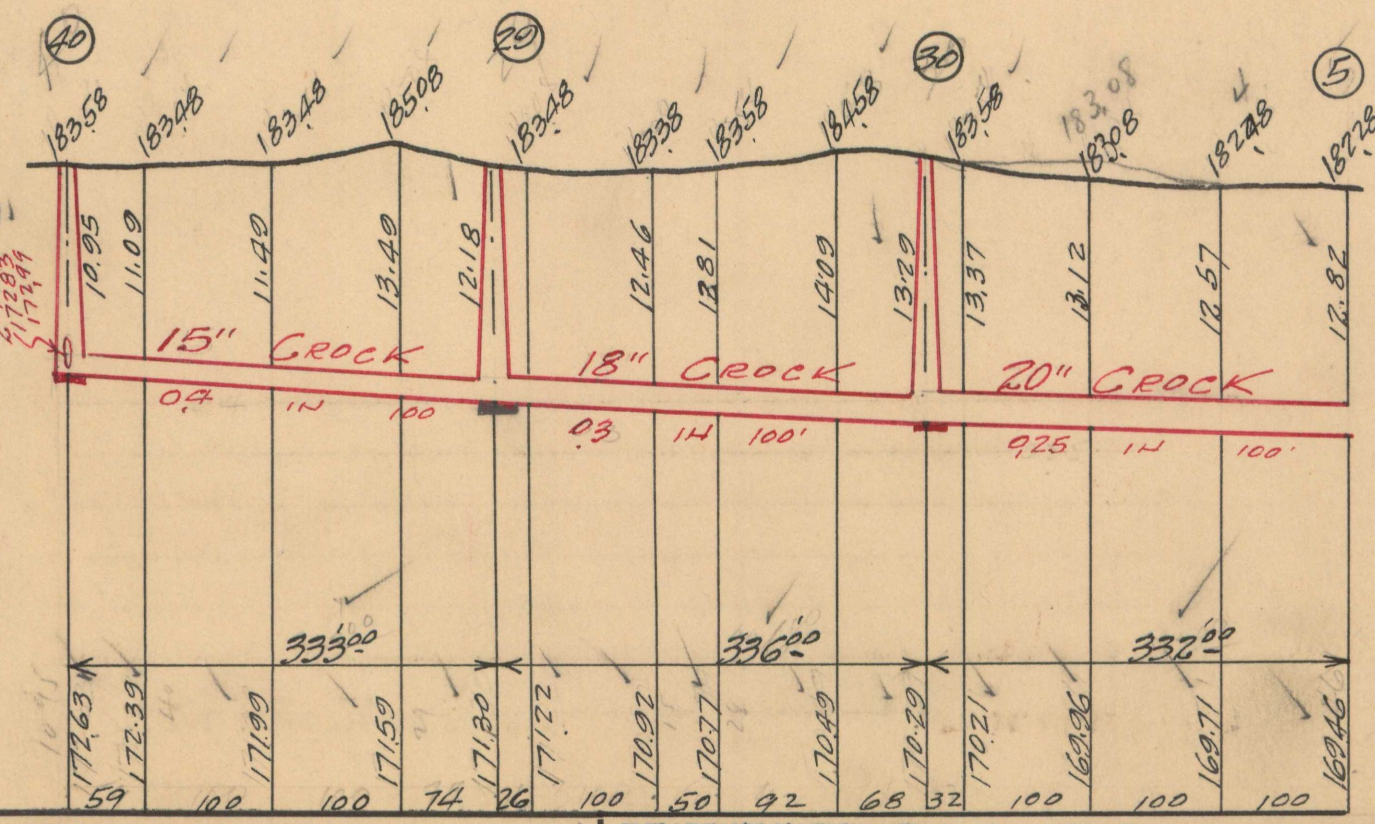 40 29 30 5
183.58 183.48 183.48 185.08 183.48 183.38 183.58 184.58 183.58 183.08 182.48 182.28
183.08
10.95 11.09 11.49 13.49 12.18 12.46 12.81 14.09 13.29 13.37 13.12 12.57 12.82
172.83
172.99
15" CROCK 18" CROCK 20" CROCK
0.4 IN 100 0.3 IN 100' 0.25 IN 100'
333.00 336.00 332.00
172.63 172.39 171.99 171.59 171.30 171.22 170.92 170.77 170.49 170.29 170.21 169.96 169.71 169.46
59 100 100 74 26 100 50 92 68 32 100 100 100